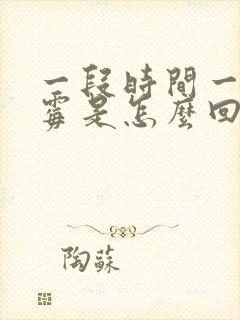 一段時間一
霉是怎麼回
陶蘇